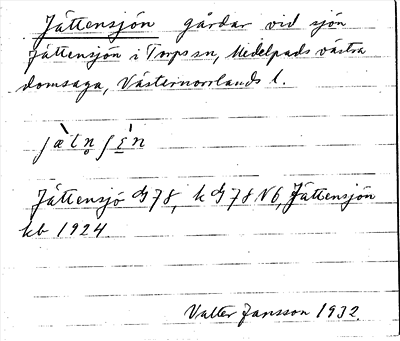 Jättensjön gårdar vid sjön
Jättensjön i Torps sn, Medelpads västra
domsaga, Västernorrlands l.
Jättensjö G 78, k G 78 N6, Jättensjön
kb 1924
Valter Jansson 1932.